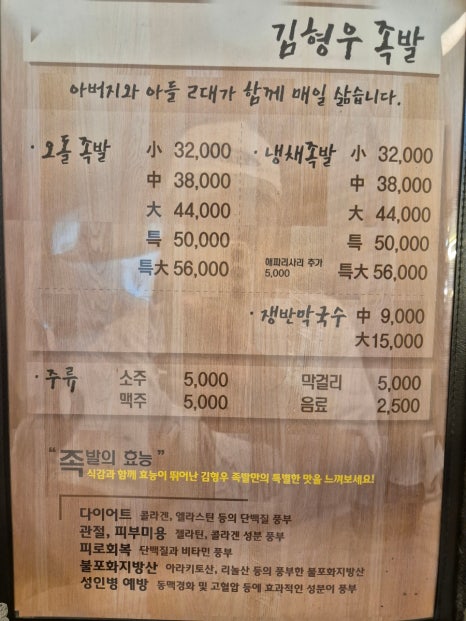 김형우 족발
아버지와 아들 2대가 함께 매일 삶습니다.
· 오돌 족발
小 32,000
中 38,000
大 44,000
특 50,000
특大 56,000
· 냉채족발
小 32,000
中 38,000
大 44,000
특 50,000
해파리사리 추가
5,000
특大 56,000
· 쟁반막국수 中 9,000
大 15,000
· 주류
소주 5,000
맥주 5,000
막걸리 5,000
음료 2,500
"족발의 효능"
식감과 함께 효능이 뛰어난 김형우 족발만의 특별한 맛을 느껴보세요!
다이어트 콜라겐, 엘라스틴 등의 단백질 풍부
관절, 피부미용 젤라틴, 콜라겐 성분 풍부
피로회복 단백질과 비타민 풍부
불포화지방산 아라키토산, 리놀산 등의 풍부한 불포화지방산
성인병 예방 동맥경화 및 고혈압 등에 효과적인 성분이 풍부